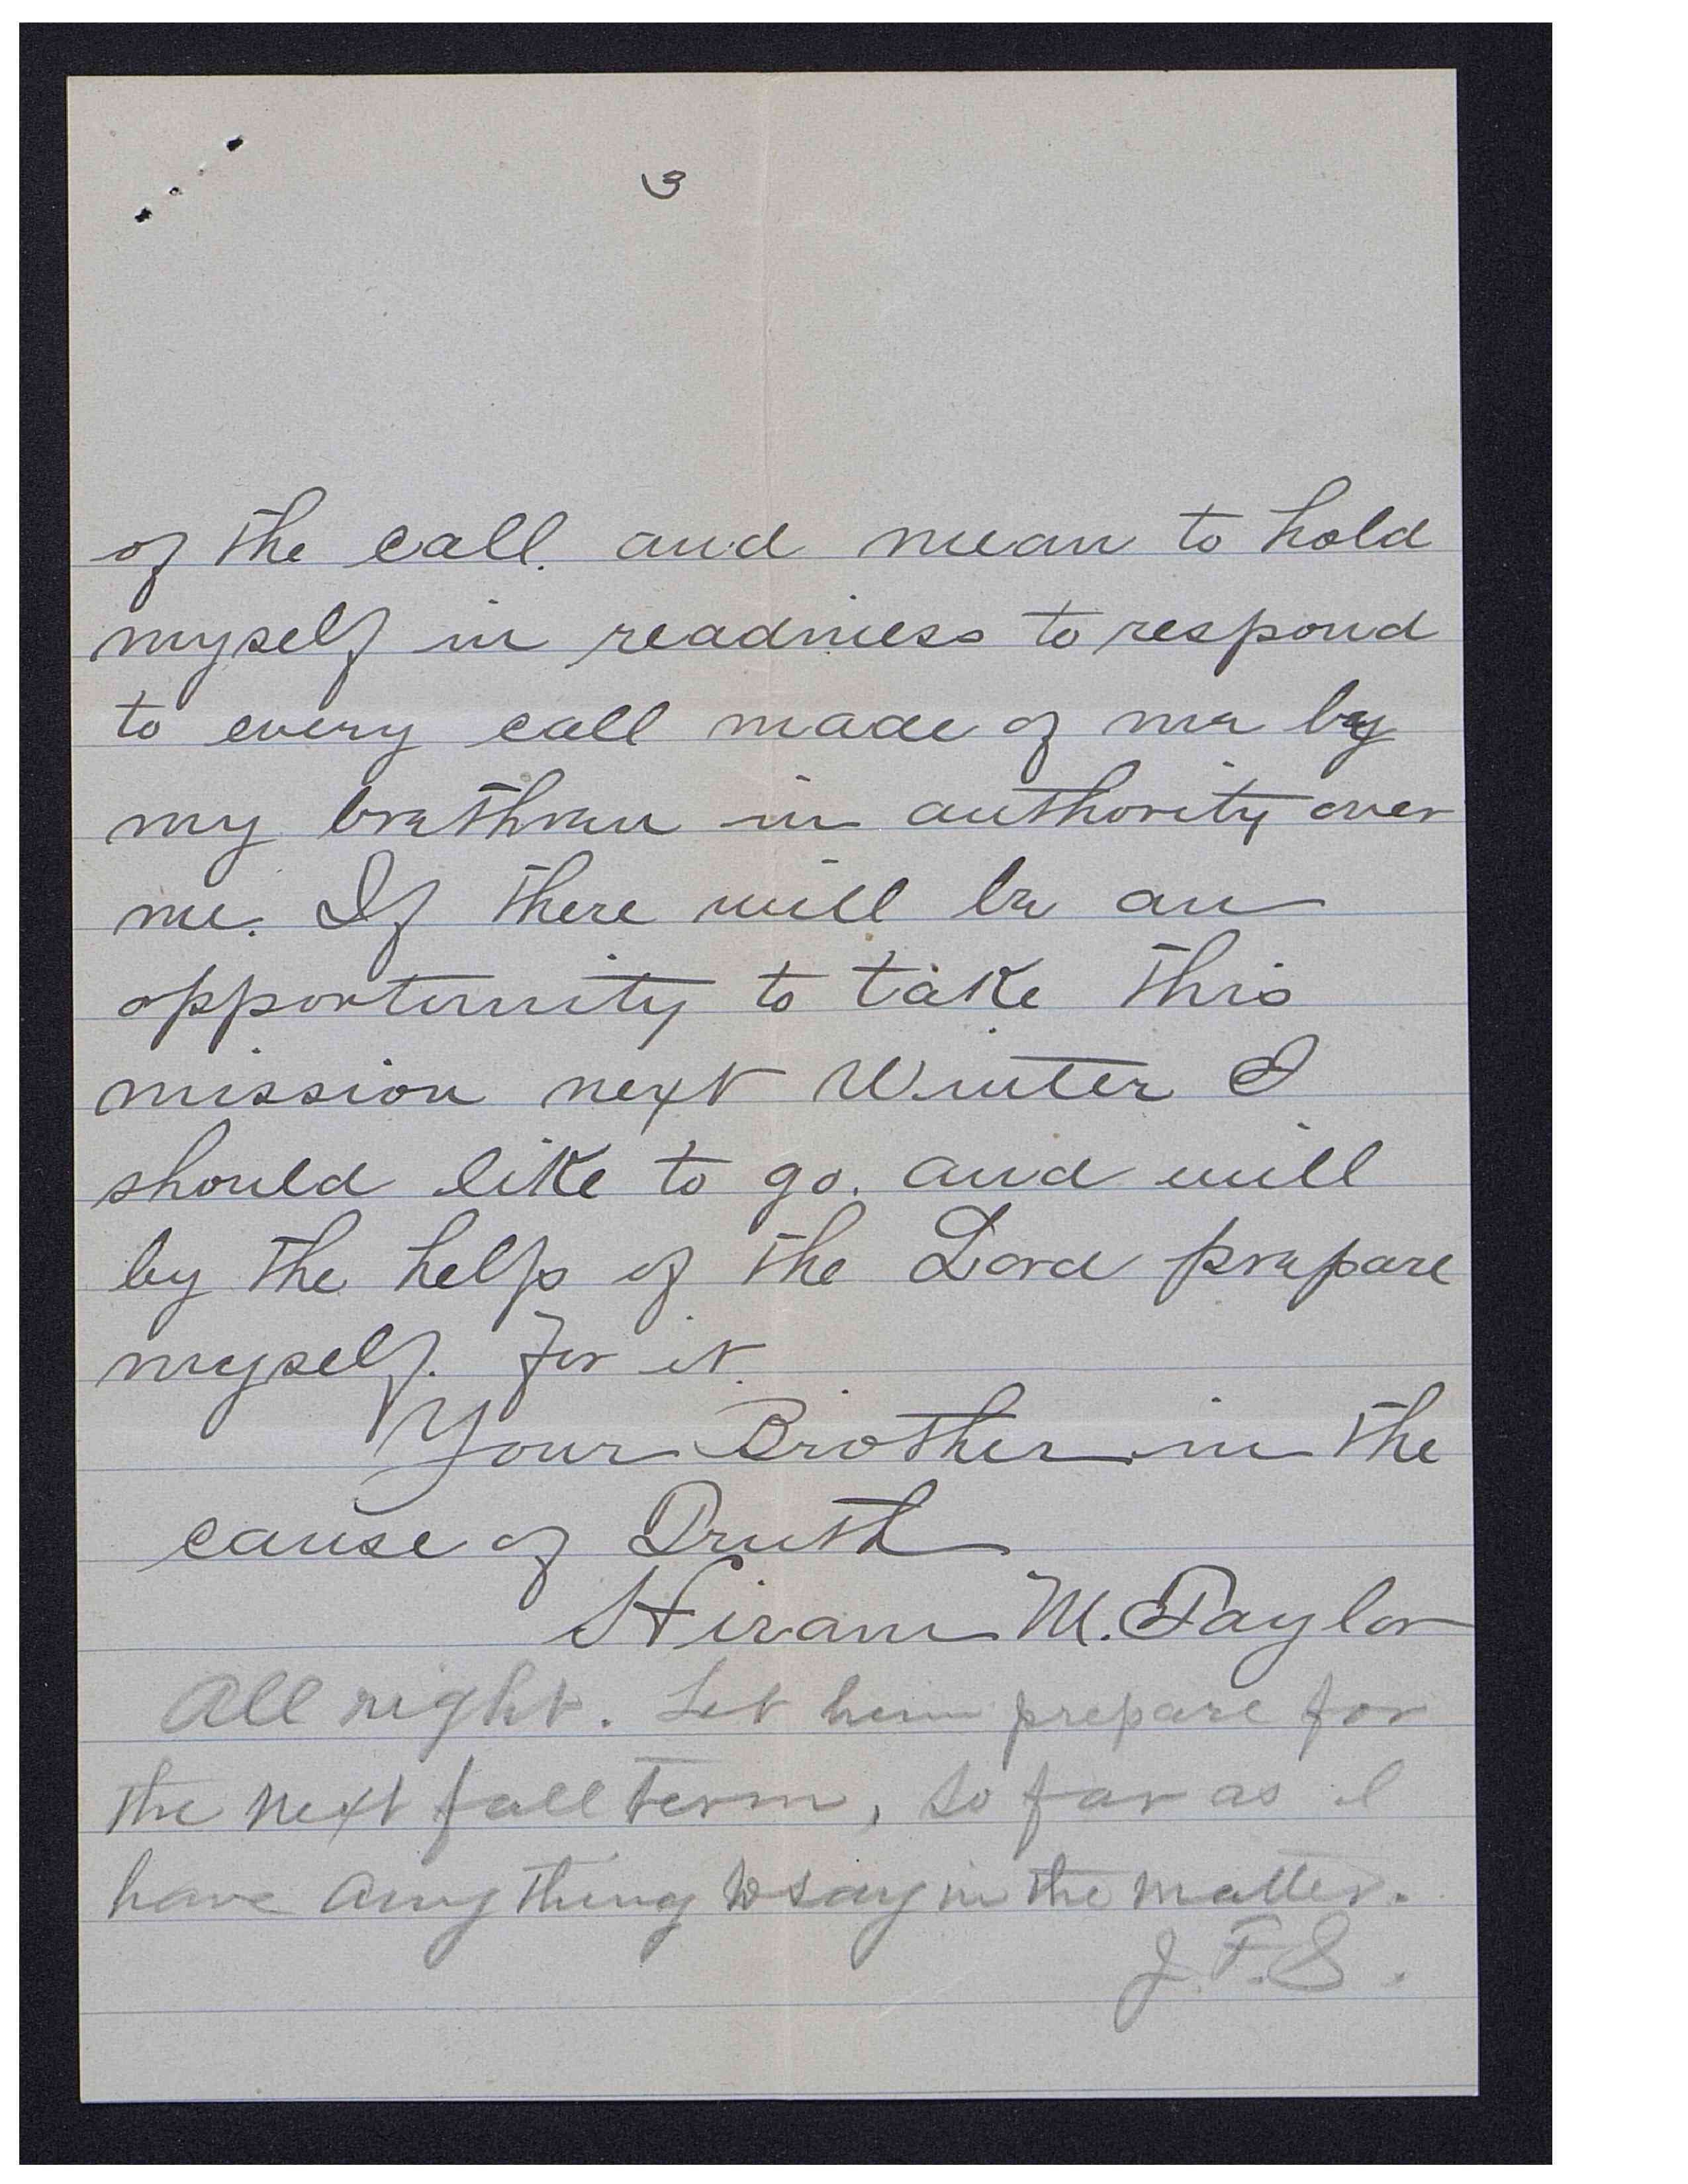 3
of the call. and mean to hold
myself in readiness to respond
to every call made of me by
my brethren in authority over
me. If there will be an
opportunity to take this
mission next Winter I
should like to go. and will
by the help of the Lord prepare
myself. for it.
Your Brother in the
cause of Truth
Hiram M. Taylor
All right. Let him prepare for
the next fall term, so far as I
have anything to say in the matter.
J. F. S.